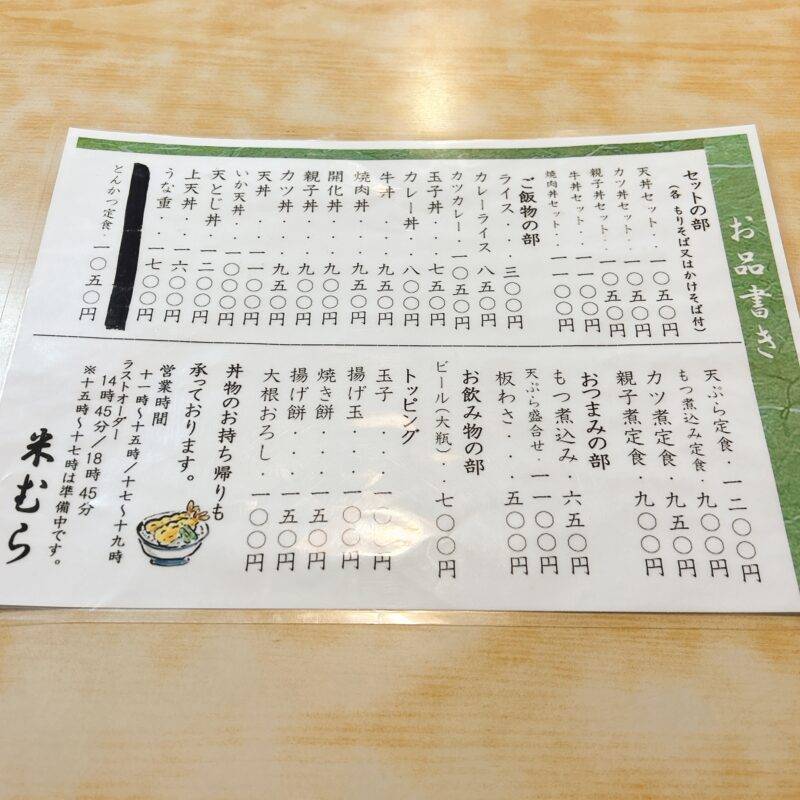 お品書き
セットの部
(各 もりそば又はかけそば付)
天丼セット・一〇五〇円
カツ丼セット・一〇五〇円
親子丼セット・一〇〇〇円
牛丼セット・・一一〇〇円
焼肉丼セット・一一〇〇円
ご飯物の部
ライス・・・三〇〇円
カレーライス 八五〇円
カツカレー・一〇五〇円
玉子丼・・・七五〇円
カレー丼・・八〇〇円
牛丼・・・・九五〇円
焼肉丼・・・九五〇円
開化丼・・・九〇〇円
親子丼・・・九〇〇円
カツ丼・・・九五〇円
天丼・・・・九五〇円
いか天丼・・一一〇〇円
天とじ丼・・一〇〇〇円
上天丼・・・一二〇〇円
うな重・・・一六〇〇円
一七〇〇円
とんかつ定食・一〇五〇円
天ぷら定食・一二〇〇円
もつ煮込み定食・九〇〇円
カツ煮定食・九五〇円
親子煮定食・九〇〇円
おつまみの部
もつ煮込み・六五〇円
天ぷら盛合せ・一一〇〇円
板わさ・・・五〇〇円
お飲み物の部
ビール(大瓶)・七〇〇円
トッピング
玉子・・・・一〇〇円
揚げ玉・・・一〇〇円
焼き餅・・・一五〇円
揚げ餅・・・一五〇円
大根おろし・一〇〇円
丼物のお持ち帰りも
承っております。
営業時間
十一時〜十五時/十七〜十九時
ラストオーダー
14時45分/18時45分
※十五時〜十七時は準備中です。
米むら